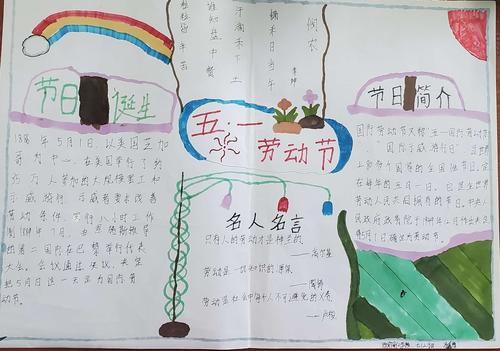 悯农
李绅
锄禾日当午
汗滴禾下土
谁知盘中餐
粒粒皆辛苦
五·一
劳动节
节日诞生
1886年5月1日，以美国芝加
哥为中
心，在美国举行了约
35万人参加的大规模罢工和
示威游行，示威者要求改善
劳动条件，实行八小时工作
制
1889年7月，由恩格斯领导
的第二国际在巴黎举行代表
大会。会议通过决议，决定
把5月1日这一天定为国际劳
动节。
名人名言
只有人的劳动才是神圣的
——高尔基
劳动是一切知识的源泉
——陶铸
劳动是社会中每个人不可避免的义务
——卢梭
节日简介
国际劳动节又称“五一国际劳动节”
、“国际示威游行日”，是世界
上80多个国家的全国性节日。定
在每年的五月一日。它是全世界
劳动人民共同拥有的节日。中央人
民政府政务院于1949年12月作出决定
将5月1日确定为劳动节。